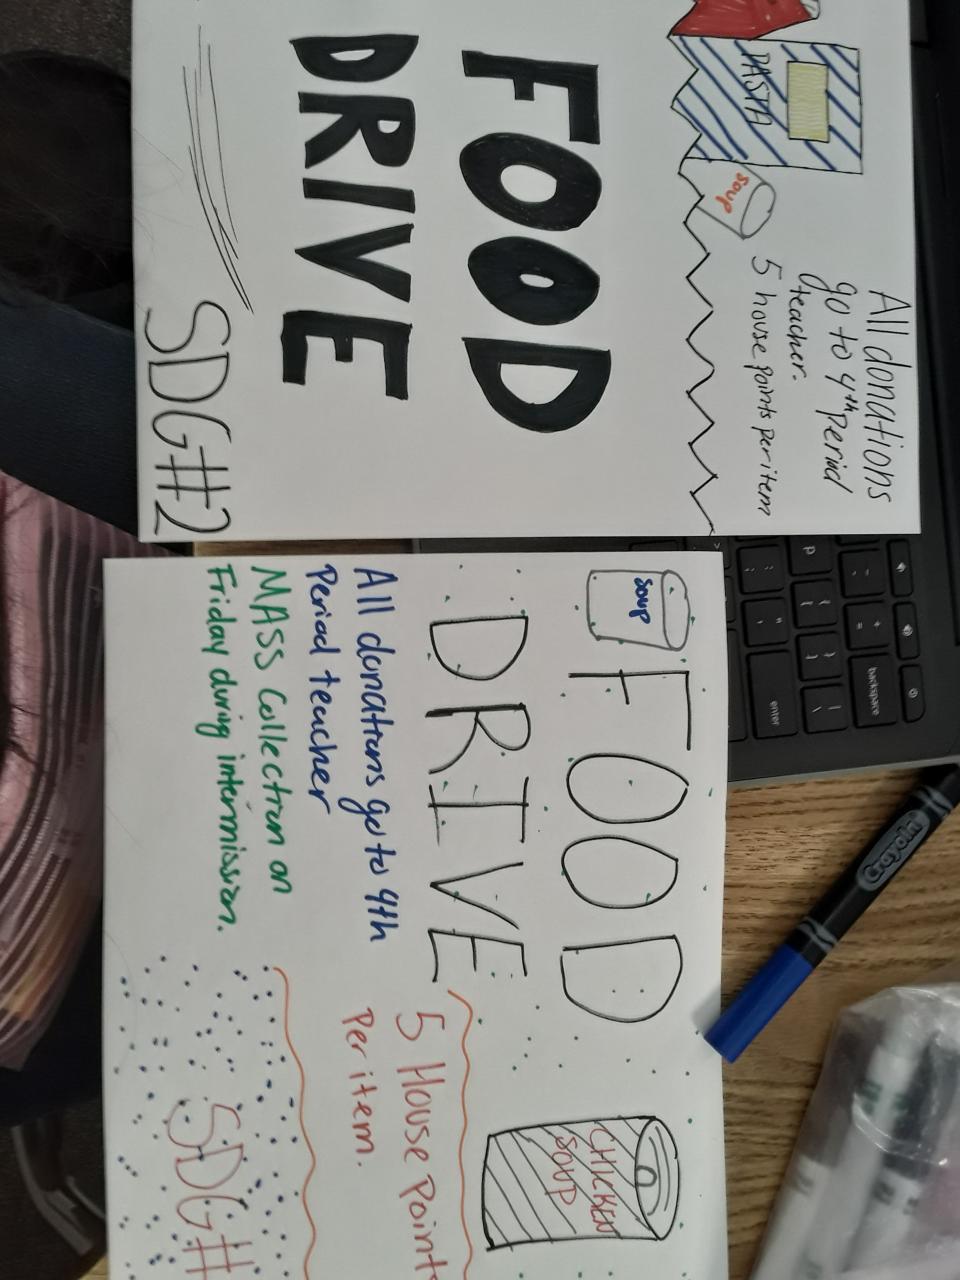 All donations
go to 4th period
teacher.
5 house points per item
PASTA
soup
FOOD
DRIVE
SDG#2
soup
FOOD
DRIVE
CHICKEN
SOUP
All donations go to 4th
Period teacher
5 House Points
Per item.
MASS Collection on
Friday during intermission.
SDG#
Crayola
backspace
enter
p